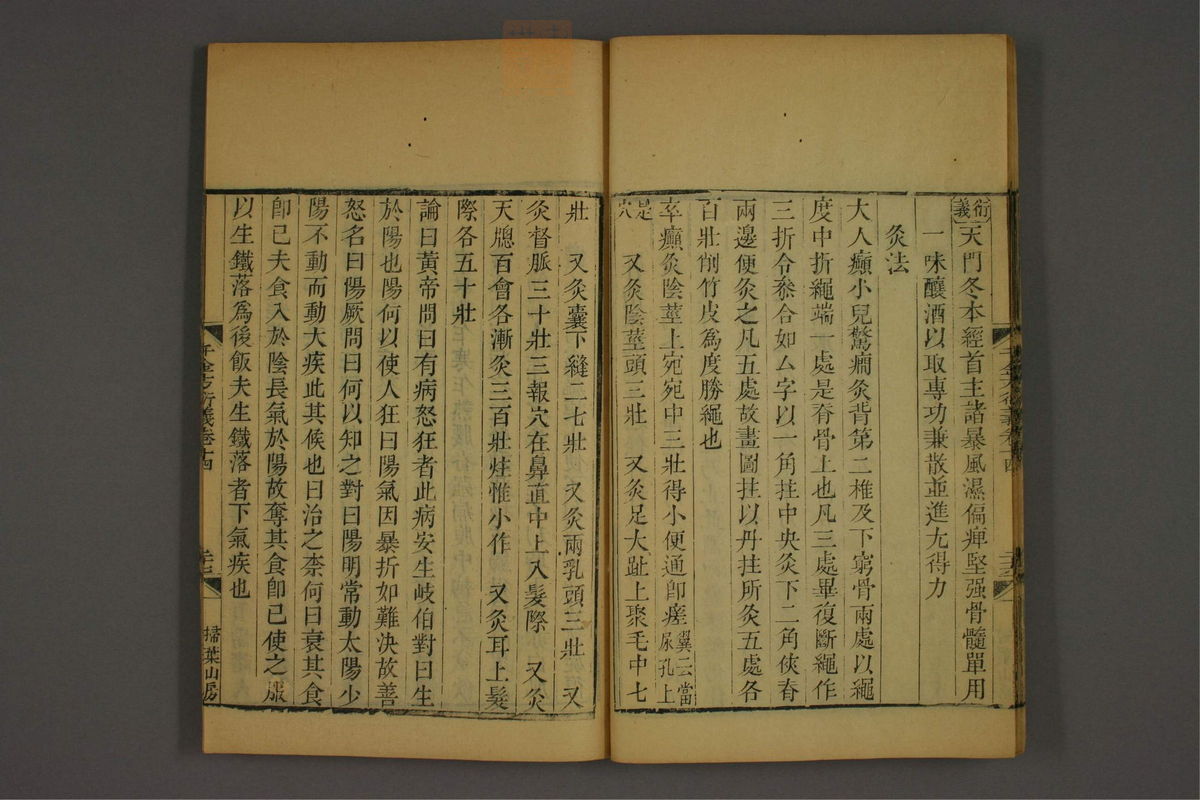 衍義天門冬本經首主諸暴風濕偏痺堅强骨髓單用
一味釀酒以取專功兼散並進尢得力
灸法
大人癲小兒驚癎灸背第二椎及下窮骨兩處以繩
度中折繩端一處是脊骨上也凡三處畢復斷繩作
三折令叅合如厶字以一角拄中央灸下二角俠脊
兩邊便灸之凡五處故畫圖拄以丹拄所灸五處各
百壯削竹皮爲度勝繩也
卒癲灸陰莖上宛宛中三壯得小便通卽瘥翼云當尿孔上
是穴 又灸陰莖頭三壯 又灸足大趾上聚毛中七
千金方衍義卷十四
壯 又灸囊下縫二七壯 又灸兩乳頭三壯 又
灸督脈三十壯三報穴在鼻直中上入髮際 又灸
天牕百會各漸灸三百壯炷惟小作 又灸耳上髮
際各五十壯
論曰黃帝問曰有病怒狂者此病安生岐伯對曰生
於陽也陽何以使人狂曰陽氣因暴折如難決故善
怒名曰陽厥問曰何以知之對曰陽明常動太陽少
陽不動而動大疾此其候也曰治之柰何曰衰其食
卽已夫食入於陰長氣於陽故奪其食卽已使之服
以生鐵落爲後飯夫生鐵落者下氣疾也
千金方衍義卷十四
掃葉山房